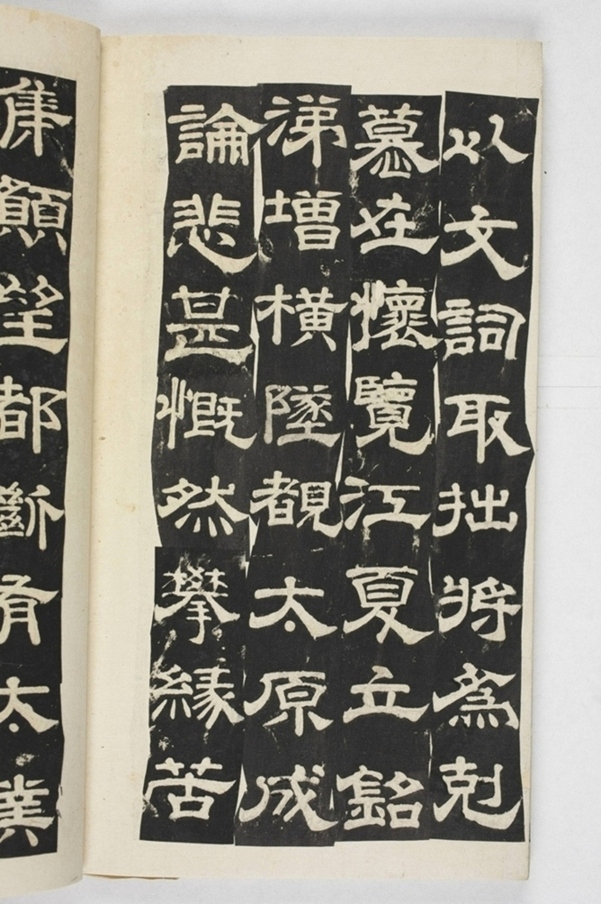 以文詞取拙將為剋
慕在懷覽江夏立銘
涕增橫墜覩太原成
論悲甚慨然攀緣苦
集顧望都斷肴太僕